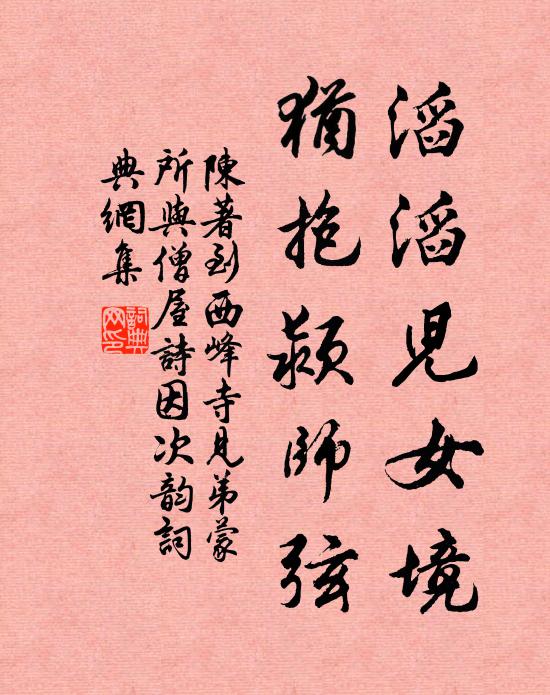 滔滔兒女境
猶抱潁師弦
陳著到西峰寺見弟蒙
所與僧屋詩因次韵詞
典網集
詞典网印